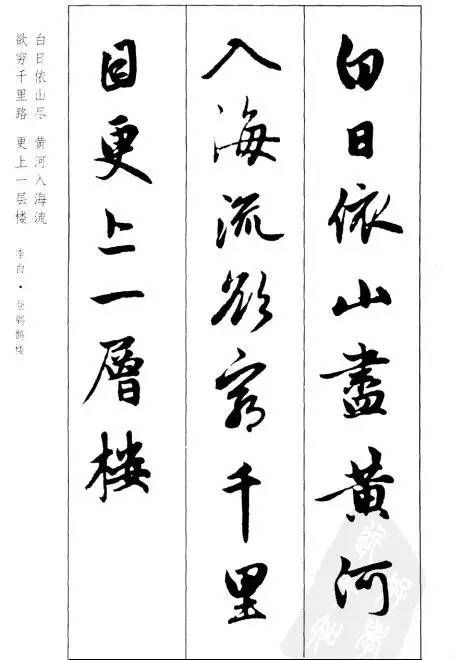 白日依山盡黃河
入海流欲窮千里
目更上一層樓
白日依山尽 黄河入海流
欲穷千里路 更上一层楼 李白·登鹳鹊楼